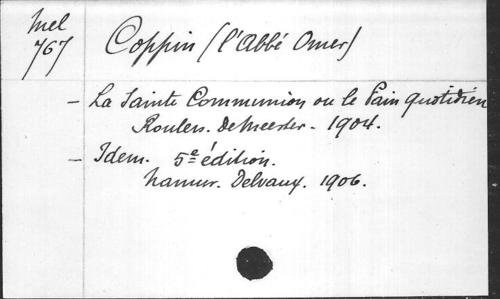 Mel
767
Coppin (l'Abbé Omer)
- La Sainte Communion ou le Pain quotidien
Roulers. DeMeester. 1904.
- Idem. 5e édition.
Namur. Delvaux. 1906.